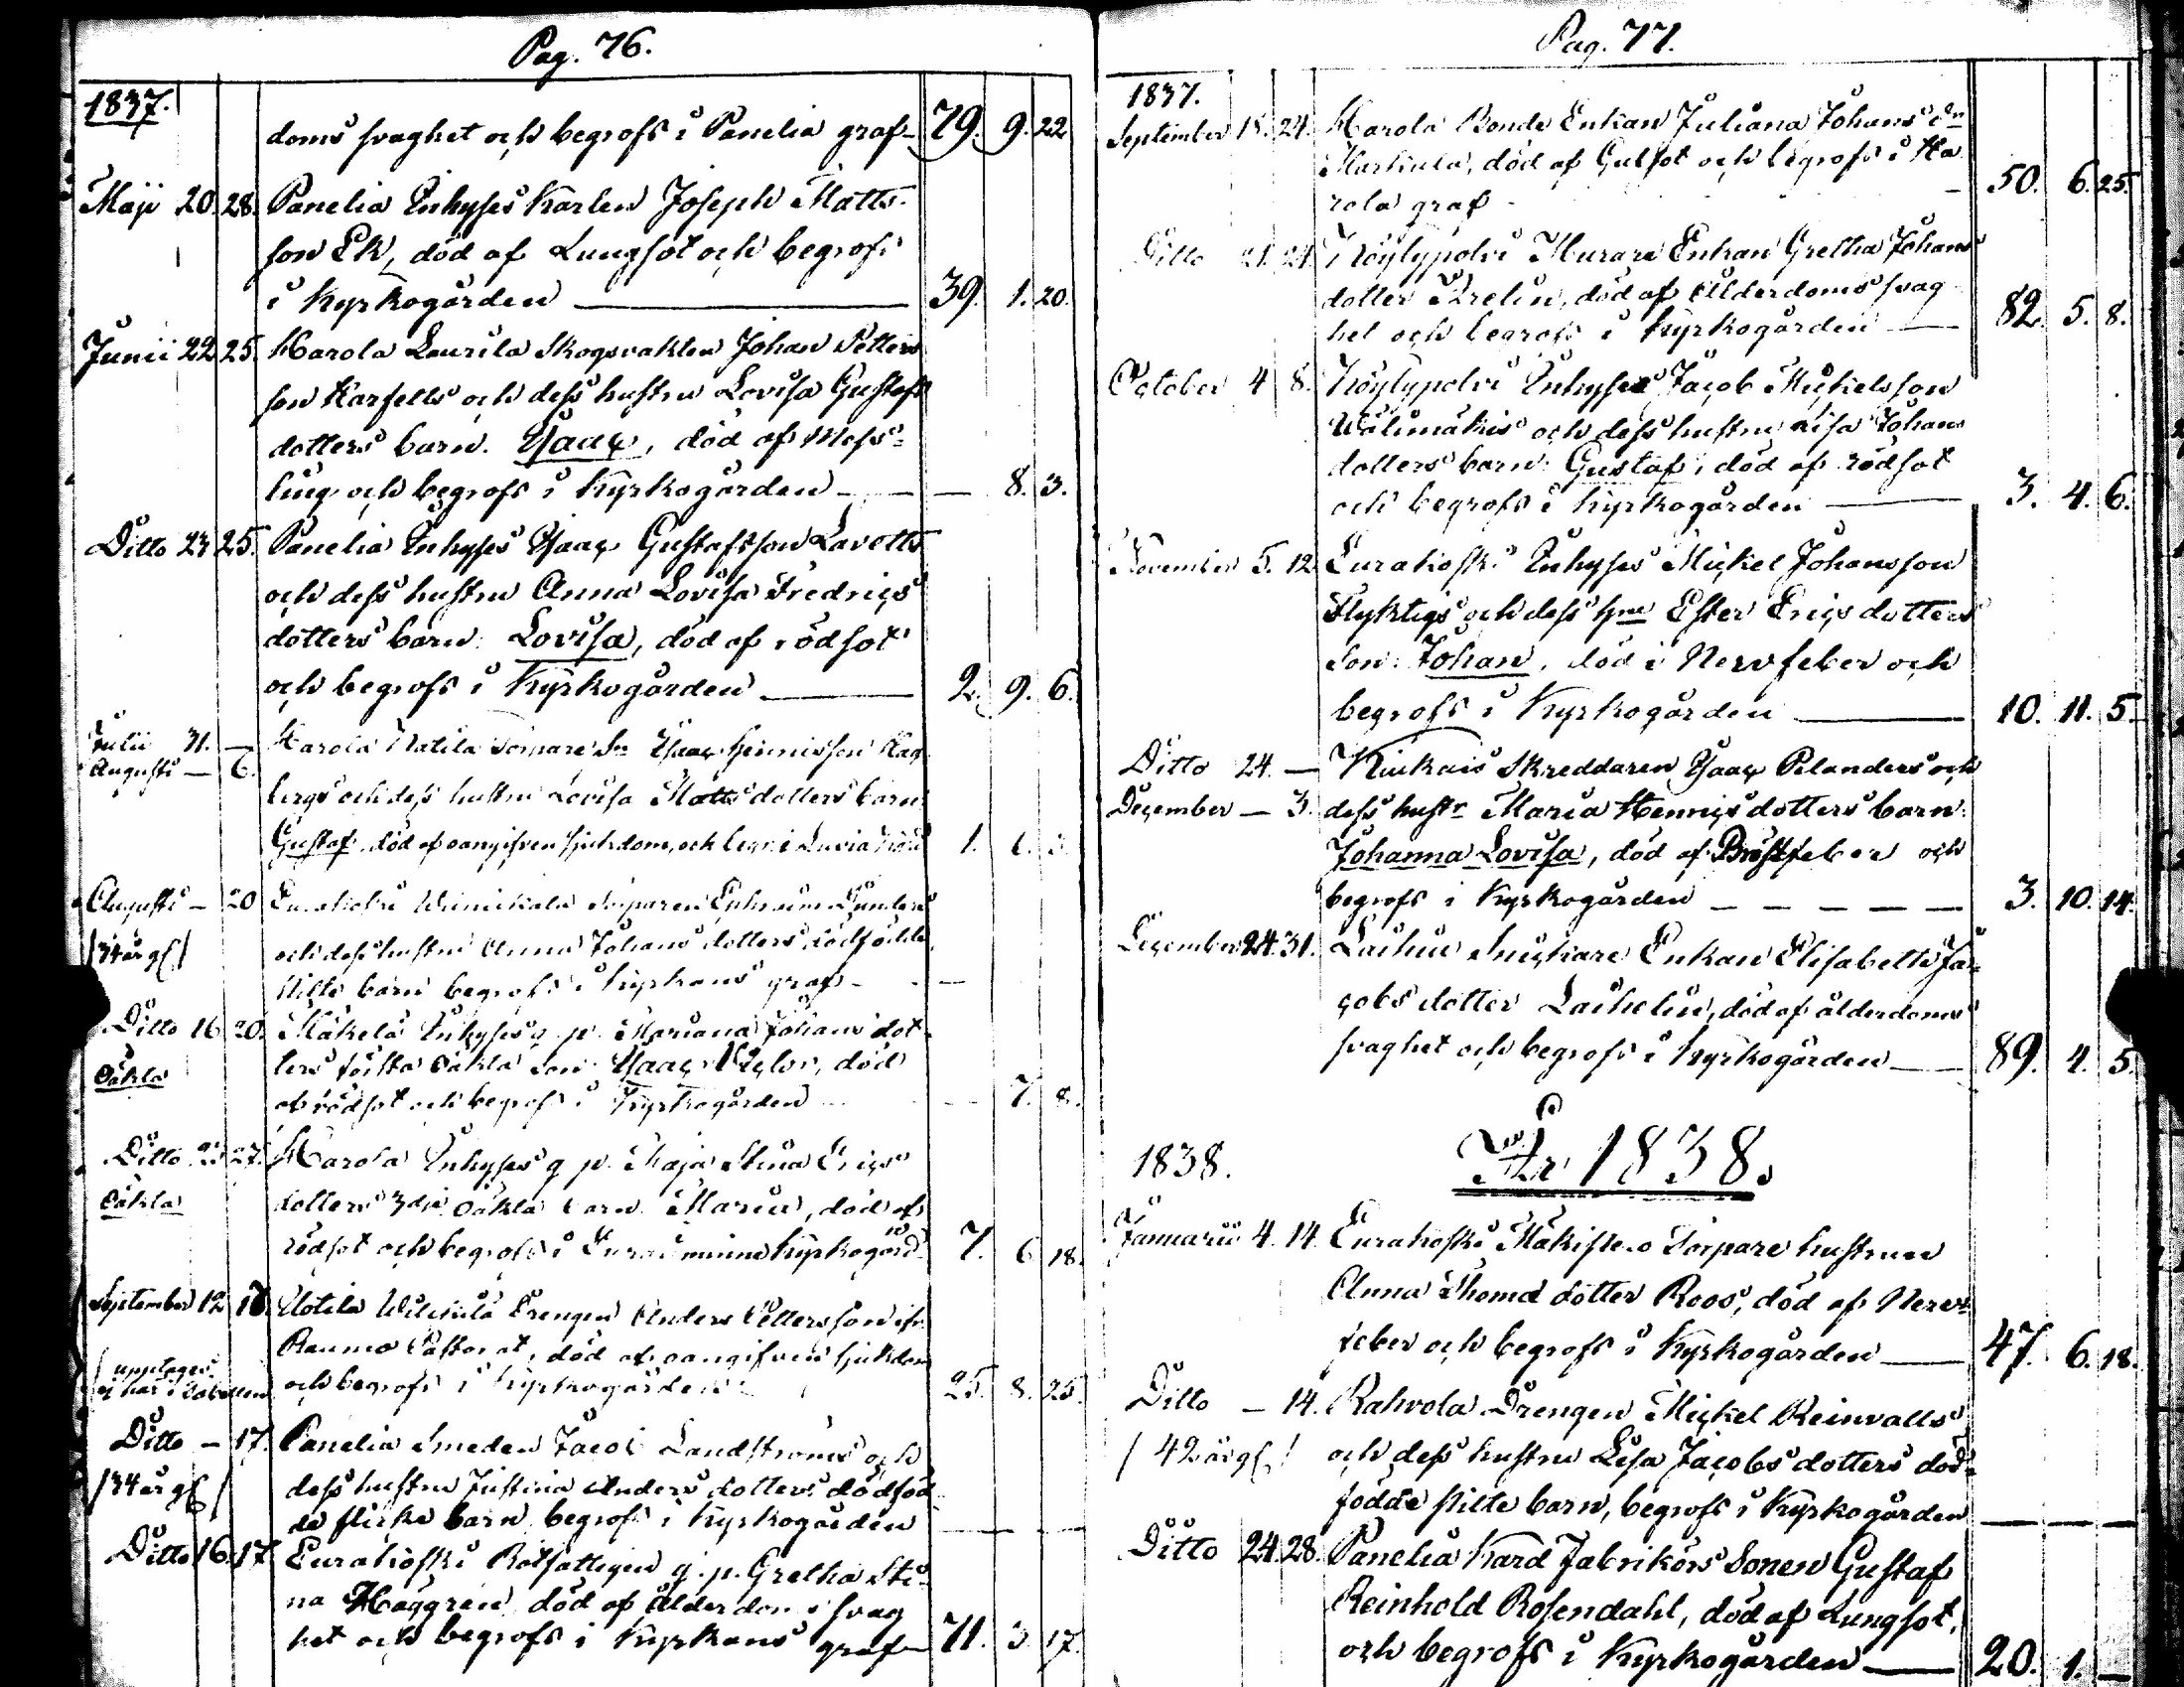 Pag. 76.
1837.
doms svaghet och begrofs i Panelia graf- 79. 9. 22
Maji 20. 28. Panelia Inhyses Karlen Joseph Matts-
son Ek, död af Lungsot och begrofs
i Kyrkogården 39. 1. 20.
Junii 22 25. Harola Laurila Skogvakten Johan Petters
son Karfells och dess hustru Lovisa Gustafs
dotters barn. Isaac, död af Mess-
ling och begrofs i Kyrkogården — 8. 3.
Ditto 23 25. Panelia Inhyses Isaac Gustafsson Lavotts
och dess hustru Anna Lovisa Fredrics
dotters barn: Lovisa, död af rödsot
och begrofs i Kyrkogården 2. 9. 6.
Julii 31. — Harola Natila
Augusti — 6.
bergs och dess hustru Lovisa Matts dotters barn
Gustaf, död af oangifven sjukdom, och begr. i Luvia 1. 6.
Augusti — 20 Eurakoski
/34 år gl/ och dess hustru Anna Johans dotters dödfödde
barn begrofs i Kyrkans graf — —
Ditto 16 20. Mäkelä Inhyses q. p. Mariana Johans dot-
ters första oäkta son: Isaac Victor, död
oäkta
af rödsot och begrofs i Kyrkogården — 7. 8.
Ditto 23 27. Harola Inhyses q p. Maja Stina Erics
oäkta dotters 3dje oäkta barn Maria, död af
rödsot och begrofs i Euraåminne Kyrkogård 7. 6 18.
September 12 18. Drengen Anders Pettersson ifr.
Raumo Pastorat, död af oangifven sjukdom
/upptages
ej här i Tabellen och begrofs i Kyrkogården 25. 8. 25.
Ditto — 17. Panelia Smeden Jacob Landströms och
/34 år gl/ dess hustru Justina Anders dotters dödföd
da flicke barn begrofs i Kyrkogården — —
Ditto 16 17. Eurakoski Rotfattigen q. p. Gretha Sti-
na Häggren död af ålderdoms svag
het och begrofs i Kyrkans graf 71. 3 17.
Pag. 77.
1837.
September 18. 24. Harola Bonde Enkan Juliana Johans dr
död af Gulsot och begrofs i Ha
rola graf — 50. 6. 25.
Ditto 21. 24. Köylypolvi Murare Enkan Gretha Johans
dotter död af Ålderdoms svag
het och begrofs i Kyrkogården 82. 5. 8.
October 4 8. Köylypolvi Inhyses Jacob Mickelsson
Wälimäkis och dess hustru Lisa Johans
dotters barn: Gustaf, död af rödsot
och begrofs i Kyrkogården 3. 4. 6.
November 5. 12. Eurakoski Inhyses Mickel Johansson
Flyktigs och dess hru Ester Erics dotters
Son: Johan, död i Nervfeber och
begrofs i Kyrkogården 10. 11. 5.
Ditto 24. — Kiukais Skreddaren Isaac Pelanders och
December — 3. dess hustr Maria Henrics dotters barn:
Johanna Lovisa, död af Bröstfeber och
begrofs i Kyrkogården — — — — — 3. 10. 14.
December 24. 31. Laihia Snickare Enkan Elisabeth Ja-
cobs dotter Laihelin, död af ålderdoms
svaghet och begrofs i Kyrkogården 89. 4. 5.
1838. År 1838.
Januarii 4. 14. Eurakoski Torpare hustrun
Anna Thomas dotter Roos, död af Nerv-
feber och begrofs i Kyrkogården 47. 6. 18.
Ditto — 14. Rahvola Drengen Mickel Reinvalls
/42 år gl./ och dess hustru Lisa Jacobs dotters död-
födde barn, begrofs i Kyrkogården — — —
Ditto 24. 28. Panelia Kard Fabrikörs Sonen Gustaf
Reinhold Rosendahl, död af Lungsot,
och begrofs i Kyrkogården 20. 1. —